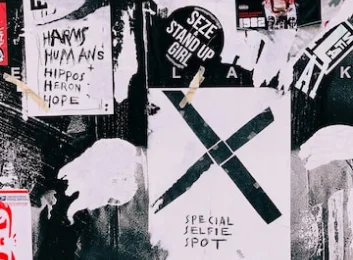 HARMS
HUMANS
HIPPOS
HERON
HOPE
SEZE
STAND UP
GIRL
1982
E
L
A
K
SPECIAL
SELFIE
SPOT